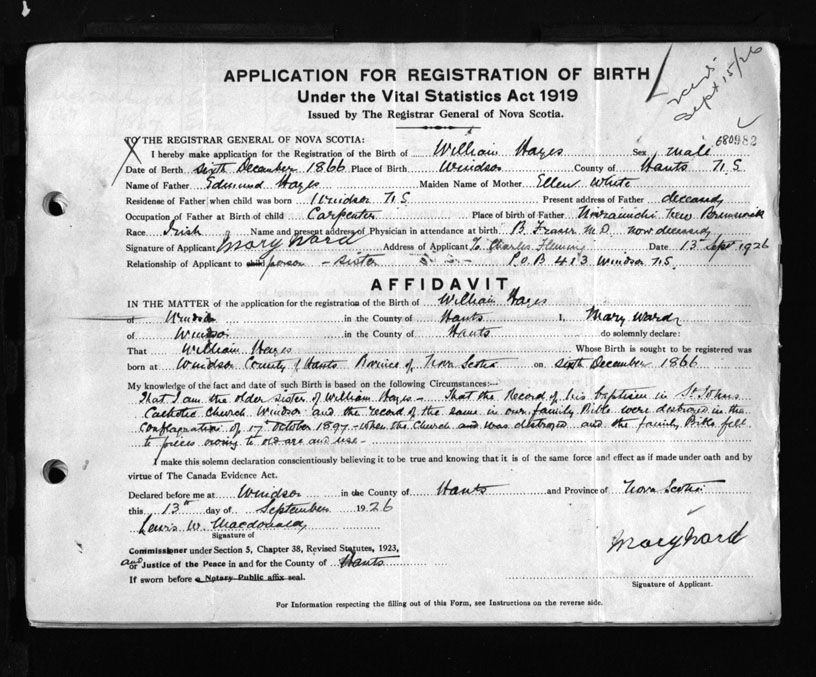 Recd.
Sept 15/26
APPLICATION FOR REGISTRATION OF BIRTH
Under the Vital Statistics Act 1919
Issued by The Registrar General of Nova Scotia.
680982
TO THE REGISTRAR GENERAL OF NOVA SCOTIA:
I hereby make application for the Registration of the Birth of William Hayes Sex male
Date of Berth sixth December 1866 Place of Birth Windsor County of Hants N S
Name of Father Edmund Hayes Maiden Name of Mother Ellen White
Residense of Father when child was born Windsor N S Present address of Father
Occupation of Father at Birth of child Carpenter Place of birth of Father New Brunswick
Race Irish Name and present address of Physician in attendance at birth B. Fraser M.D. now deceased
Signature of Applicant Mary Ward Address of Applicant c/o Charles Fleming Date 13 Sept 1926
Relationship of Applicant to child person - sister P.O.B 413 Windsor N.S.
AFFIDAVIT
IN THE MATTER of the application for the registration of the Birth of William Hayes
of Windsor in the County of Hants I, Mary Ward
of Windsor in the County of Hants do solemnly declare:
That William Hayes Whose Birth is sought to be registered was
born at Windsor County of Hants Province of Nova Scotia on sixth December 1866
My knowledge of the fact and date of such Birth is based on the following Circumstances:—
That I am the older sister of William Hayes - That the Record of his baptism in St. Johns
Catholic Church Windsor and the record of the same in our family Bible were destroyed in the
Conflagration of 17th October 1897 - when the Church was destroyed and the family Bible fell
to pieces owing to old age and use -
I make this solemn declaration conscientiously believing it to be true and knowing that it is of the same force and effect as if made under oath and by
virtue of The Canada Evidence Act.
Declared before me at Windsor in the County of Hants and Province of Nova Scotia
this 13th day of September 1926
Lewis W. Macdonald
Signature of
Commissioner under Section 5, Chapter 38, Revised Statutes, 1923,
and or Justice of the Peace in and for the County of Hants
If sworn before a Notary Public affix seal.
Mary Ward
Signature of Applicant.
For Information respecting the filling out of this Form, see Instructions on the reverse side.